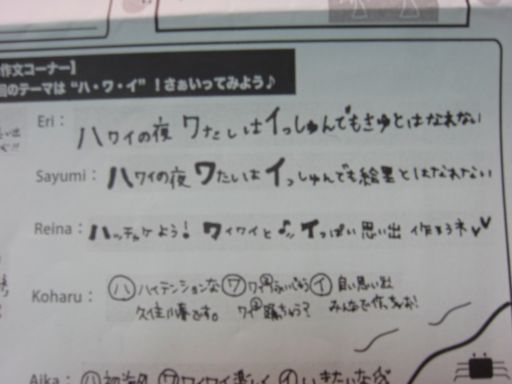 作文コーナー】
回のテーマは"ハ・ワ・イ"！さぁいってみよう♪
Eri： ハワイの夜 ワたしはイっしゅんでもきゅとはなれない
Sayumi： ハワイの夜 ワたしはイっしゅんでも絵里とはなれない
Reina： ハッチャケよう！ ワイワイと♪ イっぱい思い出 作ろうネ
Koharu： ハ ハイテンションな ワ イ 良い思い出
久住小春です。 みんなで作っちゃお！
Aika： ハ ワ ワイワイ楽しく イ いきたいな